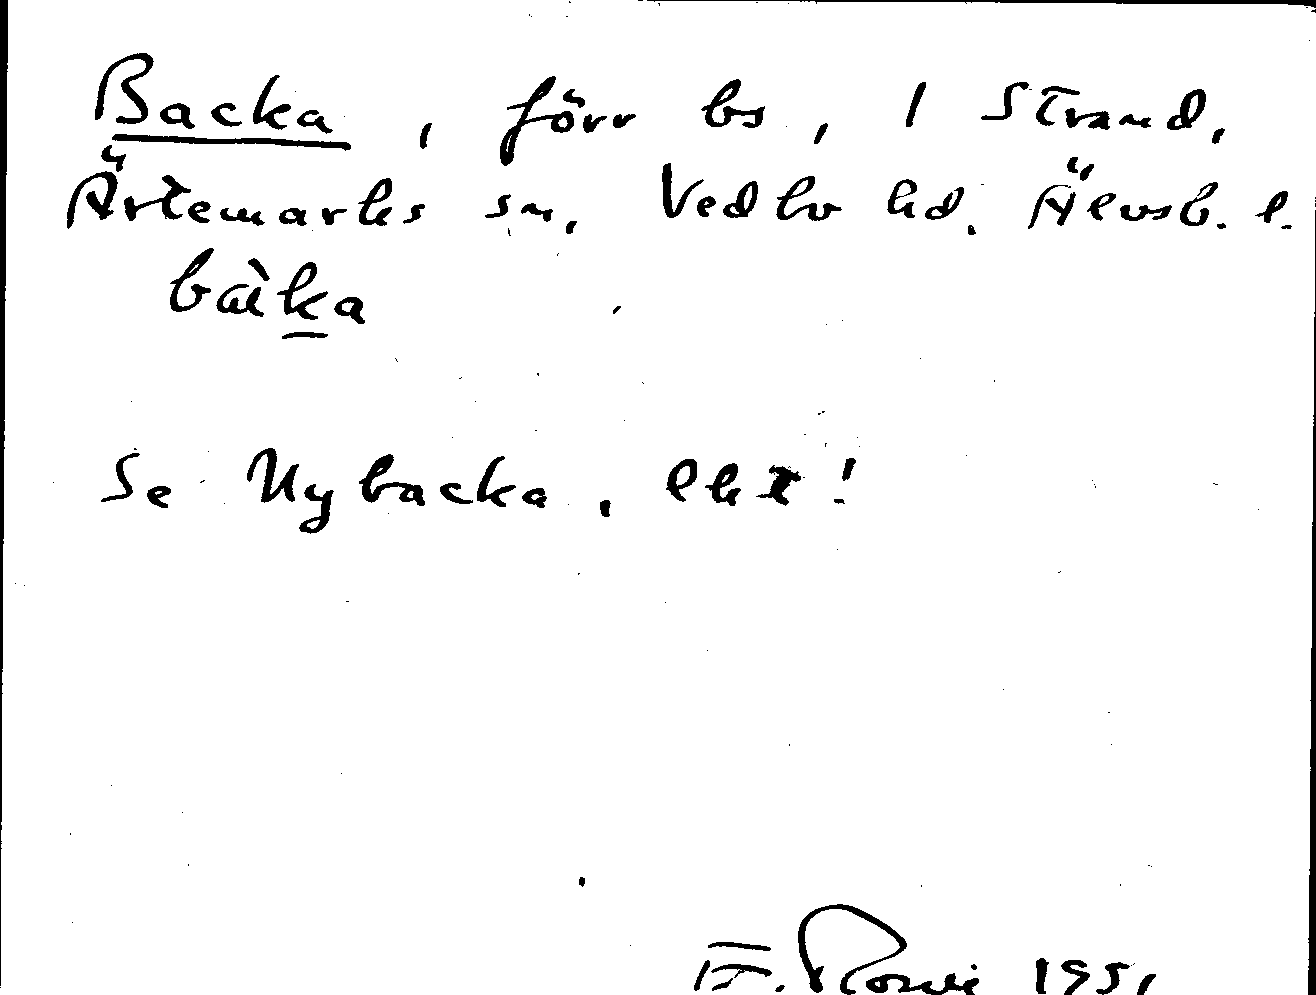 Backa, förr bs, 1 Strand,
Ärtemarks sn, Vedbo hd. Älvsb. l.
bàka
Se Nybacka, ekt!
F. 1951